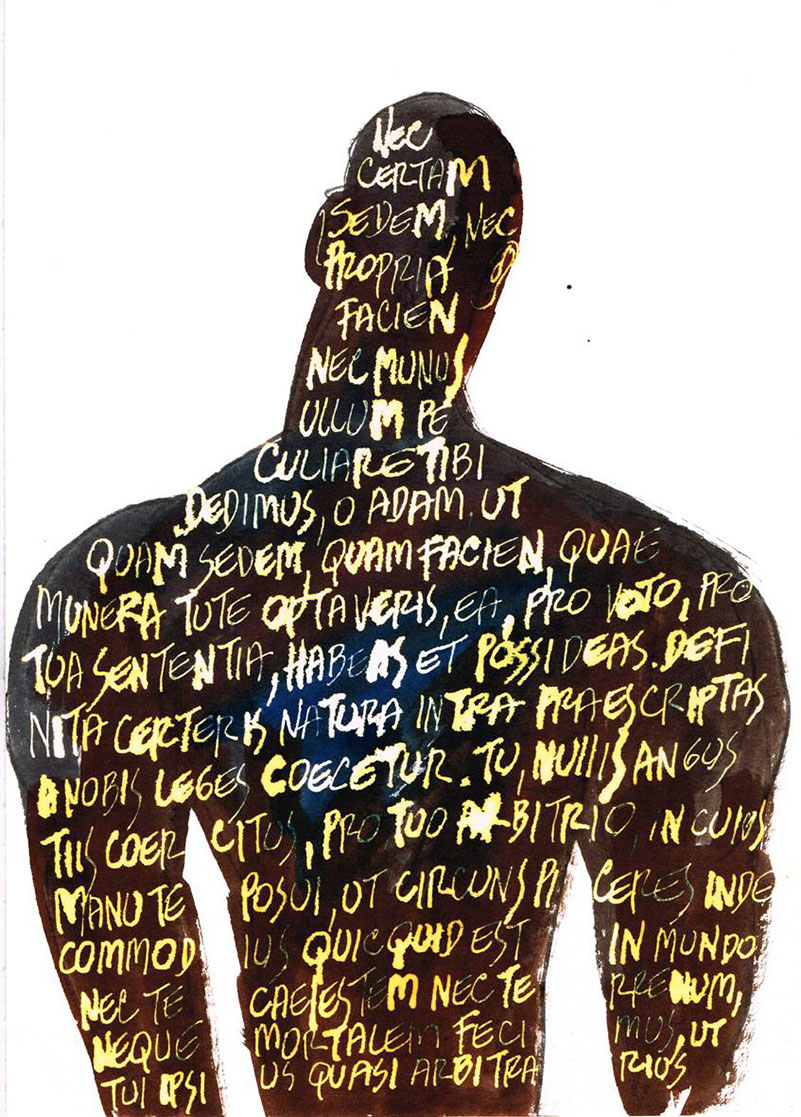 NEC
CERTAM
SEDEM, NEC
PROPRIA
FACIEN
NEC MUNUS
ULLUM PE
CULIARE TIBI
DEDIMUS, O ADAM, UT
QUAM SEDEM, QUAM FACIEN, QUAE
MUNERA TUTE OPTAVERIS, EA, PRO VOTO, PRO
TUA SENTENTIA, HABEAS ET POSSIDEAS. DEFI
NITA CERTERIS NATURA INTRA PRAESCRIPTAS
A NOBIS LEGES COECETUR. TU, NULLIS ANGUS
TIIS COER CITUS, PRO TUO ARBITRIO, IN CUIUS
MANU TE POSUI, UT CIRCUNSPI CERES INDE
COMMOD IUS QUICQUID EST IN MUNDO.
NEC TE CAELESTEM NEC TE RRENUM,
NEQUE MORTALEM FECI MUS, UT
TUI IPSI US QUASI ARBITRA RIOS